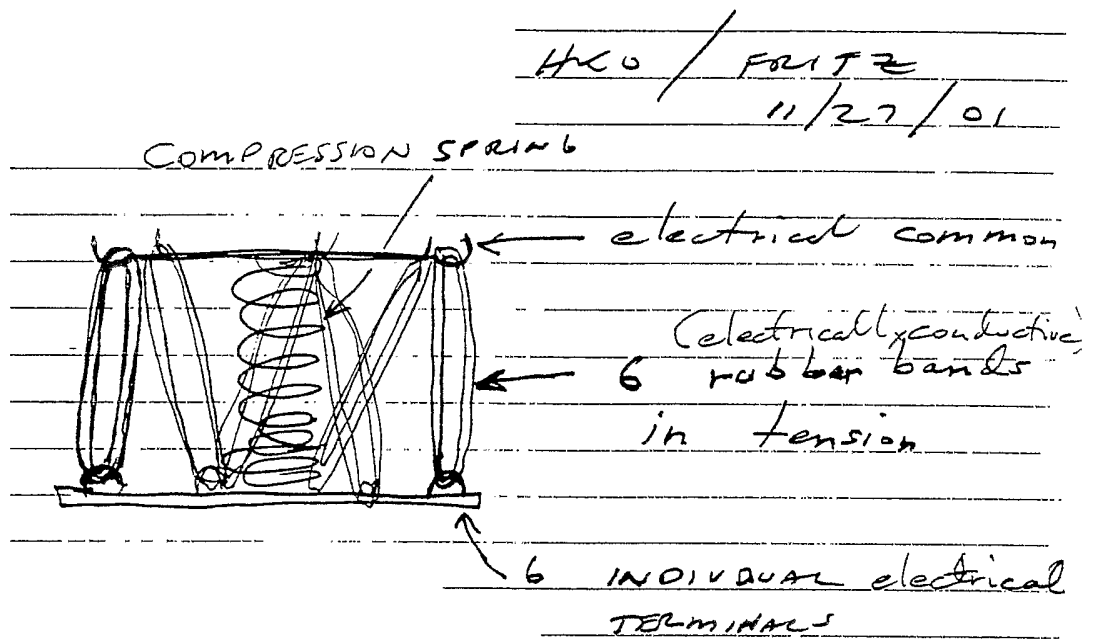 HKO / FRITZ
11/27/01
COMPRESSION SPRING
electrical common
(electrically conductive)
6 rubber bands
in tension
6 INDIVDUAL electrical
TERMINALS